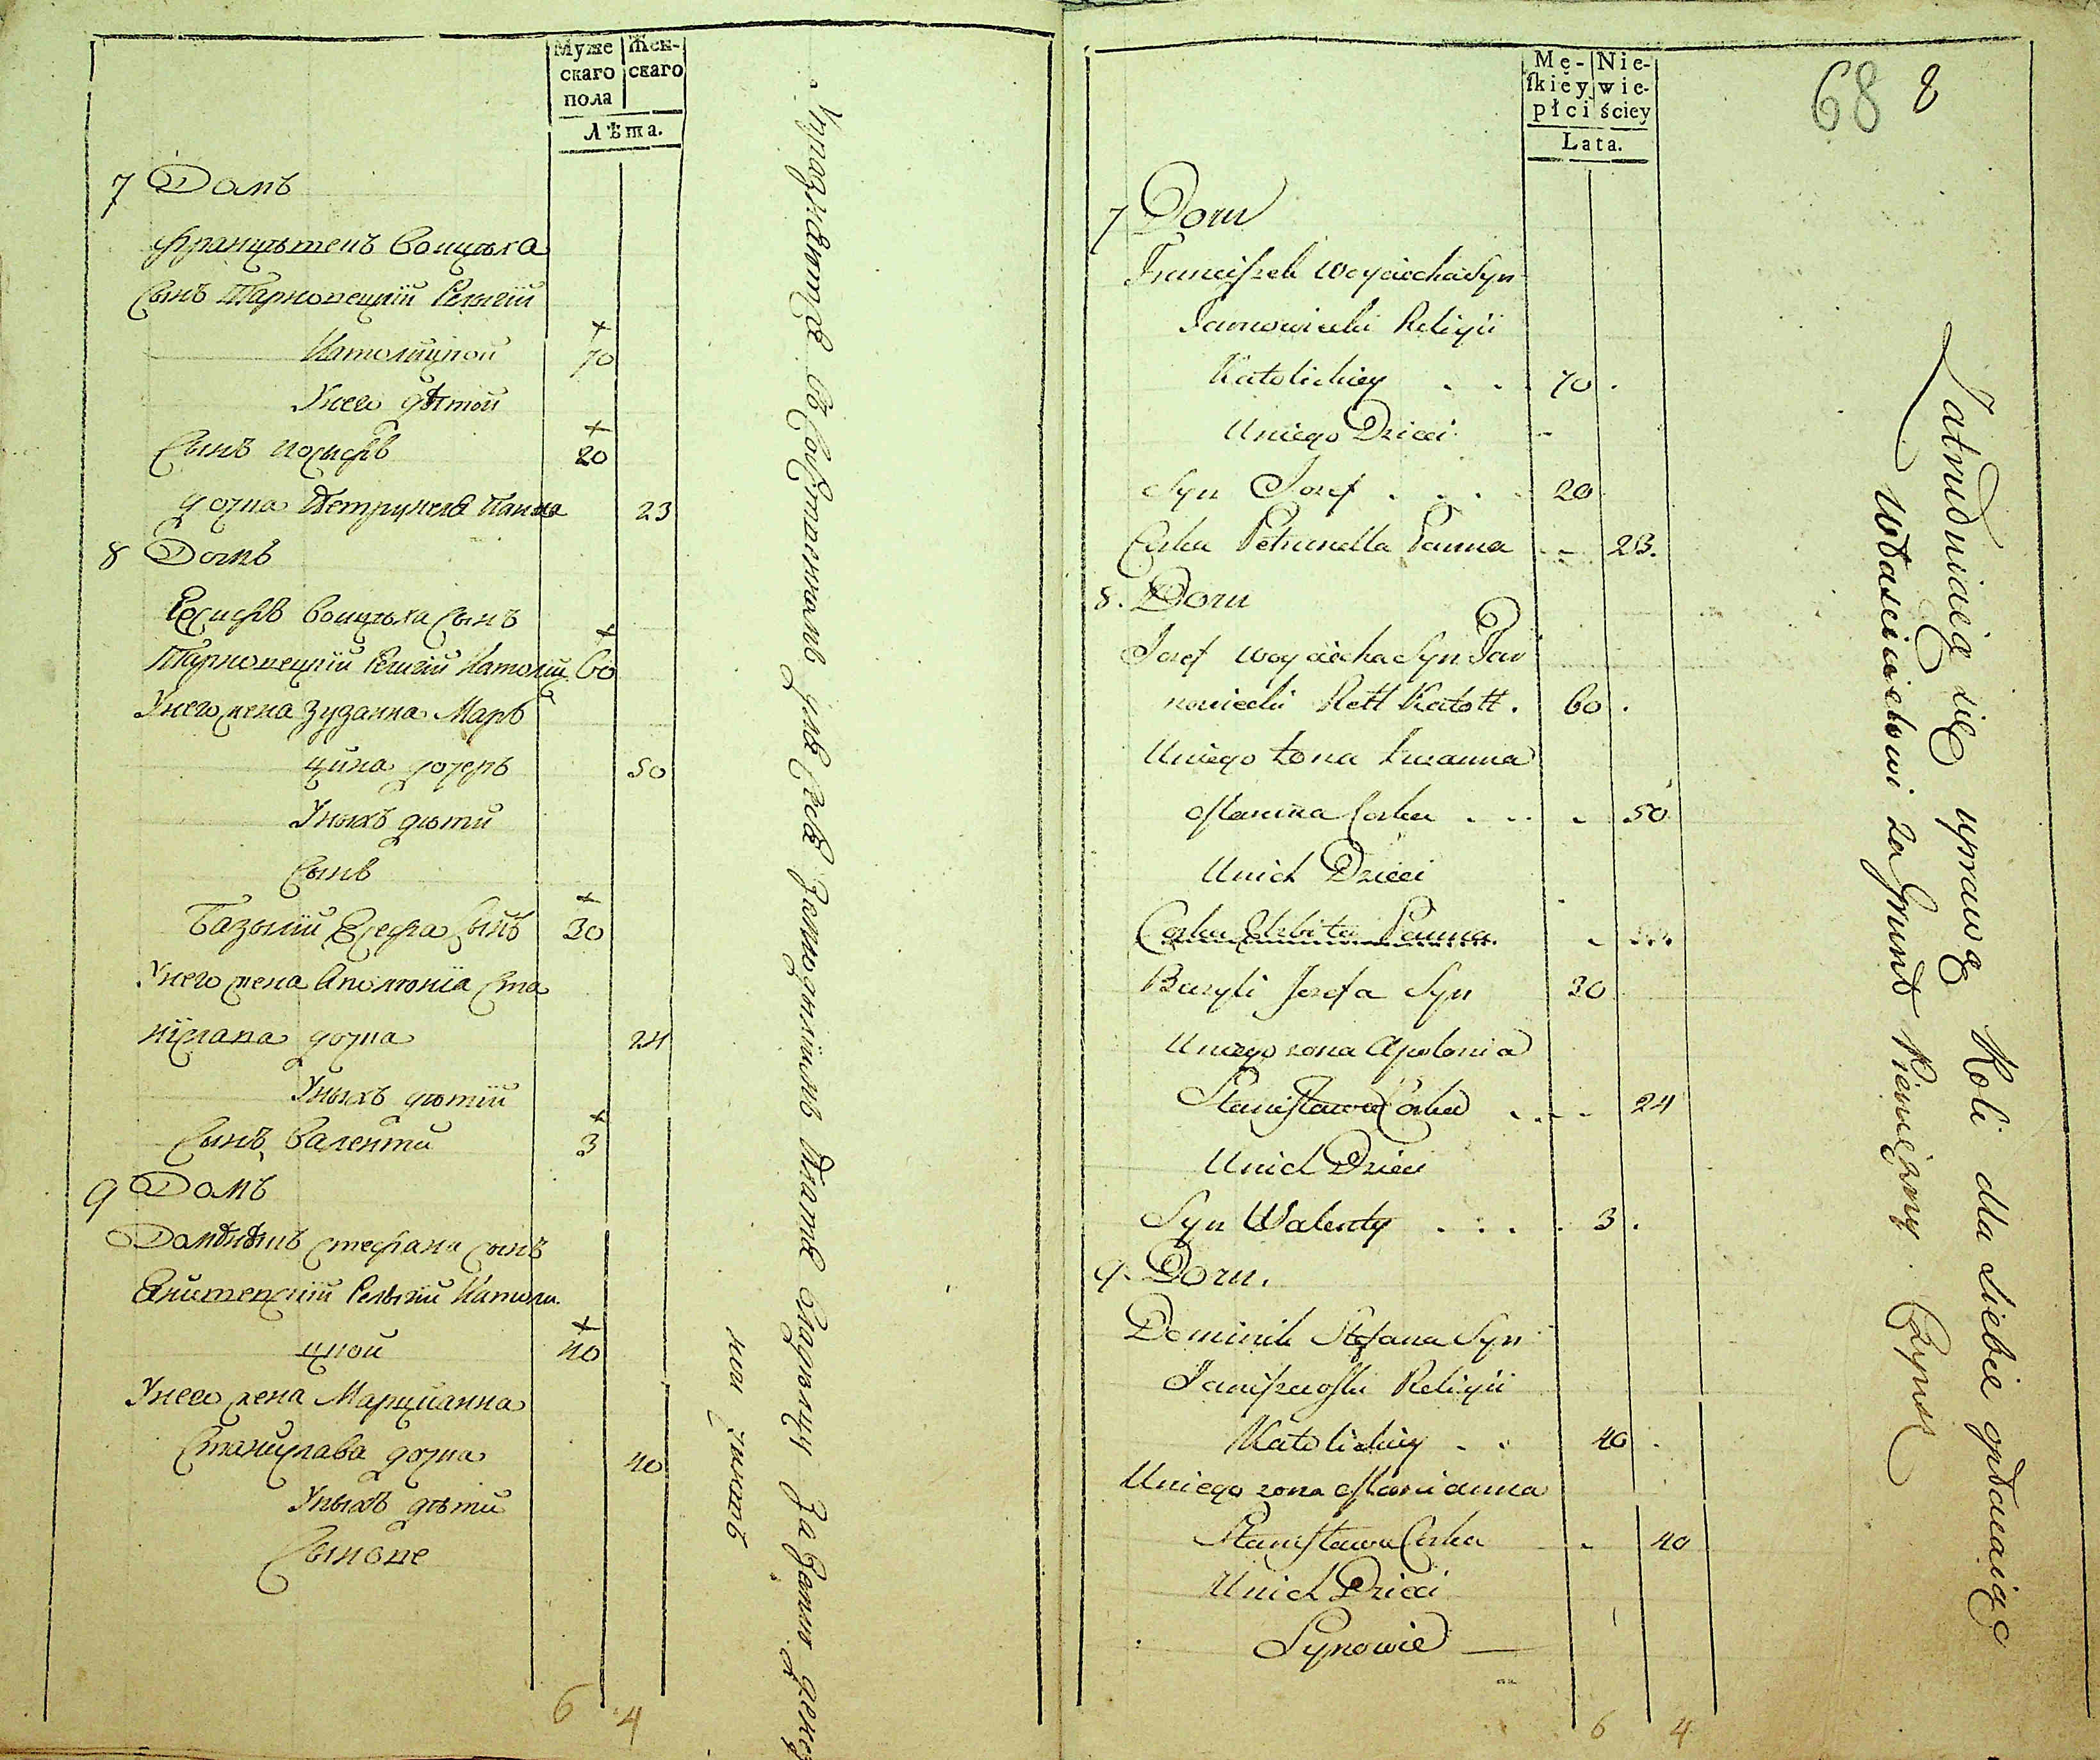 Муже
скаго
пола
Жен-
скаго
Лѣта.
7 Домъ
Францѣшекъ Воицѣха
Сынъ Тарновецкїи Религїи
Католицкои 70
Унего дѣтеи
Сынъ Иосифъ 20
дочка Петрунеля Панна 23
8 Домъ
Еосифъ Воицѣха Сынъ
Тарновецкїи Религїи Католиц 60
Унего жена Зузанна Мар
цина дочерь 50
Уныхъ дѣти
Сынъ
Базылїи Еосефа Сынъ 30
Унего жена Аполлонїа Ста
нїслава дочка 24
Уныхъ дѣтїи
Сынъ Валенти 3
9 Домъ
Доминикъ Стефана сынъ
Религїи Католи
цкои 40
Унего жена Марцианна
Станислава дочка 40
Уныхъ дѣти
Сынове
6 4
Упражняются въ для себя земледелїемъ платя за
Mę-
skiey
płci
Nie-
wie-
ściey
Lata.
68 8
7 Dom
Franciszek Woyciecha Syn
Tarnowiecki Religii
Katolickiey . . . 70 .
Uniego Dzieci
Syn Jozef . . . . 20
Corka Petrunella Panna . . 23.
8. Dom
Jozef Woyciecha Syn Tar
nowiecki Rell Katoll . 60 .
Uniego żona Zuzanna
Marcina Corka . . . . 50
Unich Dzieci
Corka Elzbieta Panna.
Bazyli Jozefa Syn 30
Uniego zona Apolonia
Stanisława Corka . . . . 24
Unich Dzieci
Syn Walenty . . . . 3 .
9. Dom.
Dominik Stefana Syn
Religii
Katolickiey . . 40 .
Uniego zona Marianna
Stanisława Corka . 40
Unich Dzieci
Synowie
6 4
Zatrudniaią się uprawą Roli dla siebie opłacaiąc
Właścicielowi za Grunt Pieniężny Czynsz